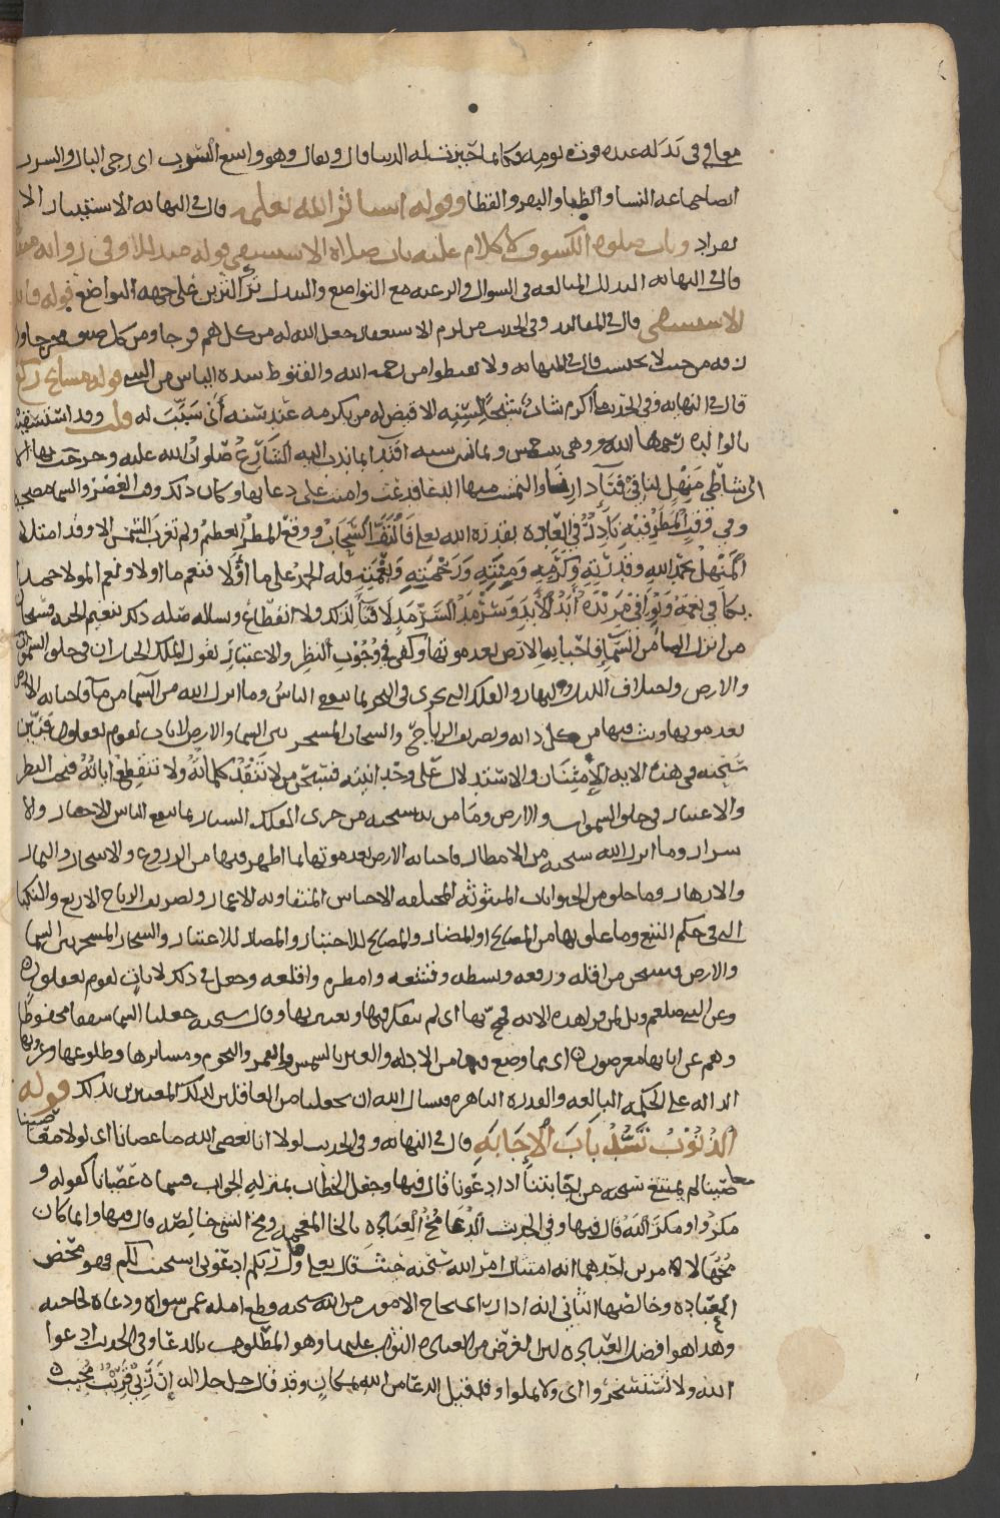 معافى فى بدنه عنده قوت يومه فكانما حيزت له الدنيا وقال ويقال وهو واسع السرب اى رخى البال والسرب
ايضا جماعة النساء والظباء والبقر والقطا وقوله استاثر الله بعلمه قال فى النهايه الاستيثار الا
نفراد وباب صلوة الكسوف لا كلام عليه باب صلاة الاستسقى قوله متبذلا وفى روايه
قال فى النهايه التبذل المبالغه فى السوال والرغبه مع التواضع والتبذل ترك التزين على جهة التواضع قوله
الاستسقى قال فى المقاليد وفى الحديث من لزم الاستغفار جعل الله له من كل هم فرجا ومن كل ضيق مخرجا
زقه من حيث لا يحتسب قال فى النهايه ولا تقنطوا من رحمة الله والقنوط شدة الياس من الشى قوله مشايخ ركع
قال فى النهايه وفى الحديث ما اكرم شاب شيخا لسنه الا قيض له من يكرمه عند سنه أى سبب له قلت وقد استسقيت
بالوالده رحمها الله وهى بنت خمس وثمانين سنه اقتداء بما ندب اليه الشارع صلوات الله عليه وخرجت بها
مَنْهل لنا فى فناء دارنا والتمست منها الدعا فدعت وامنت على دعايها وكان ذلك وقت العصر والسماء مصحيه
وفى وقت المطر فيه نادر فى العاده بقدرة الله تعلى فالتفت السحاب ووقع المطر العظيم ولم تغرب الشمس الا وقد امتلا
المنهل بحمد الله وقدرته وكرمه ومنته ورحمته ونعمته فله الحمد على ما أولا فنعم ما اولا ونعم المولا حمدا
يكافى نعمه ويوافى مزيده أبد الأبد وسرمد السرمد لا فناء لذلك ولا انقطاع
من انزل الماء من السماء فاحيا به الارض بعد موتها وكفى فى وجوب النظر والاعتبار بقول الملك الجبار ان فى خلق السموات
والارض واختلاف الليل والنهار والفلك التى تجرى فى البحر بما ينفع الناس وما انزل الله من السماء من ماء فاحيا به الارض
بعد موتها وبث فيها من كل دابه وتصريف الرياح والسحاب المسخر بين السماء والارض لايات لقوم يعقلون فبين
سبحنه فى هذه الايه الامتنان والاستدلال على وحدانيته فسبحن من لا تنفد كلماته ولا تنقطع اياته فيجب النظر
والاعتبار فى خلق السموات والارض وما من به سبحنه من جرى الفلك السيار بما ينفع الناس للاجهار والا
سرار وما انزل الله سبحنه من الامطار فاحيا به الارض بعد موتها بما اظهر فيها من الزروع والاشجار والثمار
والازهار وما خلق من الحيوانات المبثوثه المختلفه الاجناس المتفاوته الاعمار وتصريف الرياح الاربع والنكبا
التى فى حكم التبع وما علق بها من المصالح او المضار والمصالح للاختبار والمضار للاعتبار والسحاب المسخر بين السما
والارض فسبحن من اقله ورفعه وبسطه وقشعه وامطره واقلعه وجعل فى ذلك لايات لقوم يعقلون
وعن النبى صلعم ويل لمن قرا هذه الايه فمج بها اى لم يتفكر فيها ويعتبر بها وقال سبحنه وجعلنا السما سقفا محفوظا
وهم عن اياتها معرضون اى عما وضع فيها من الادله والعبر بالشمس والقمر والنجوم ومسايرها وطلوعها وغروبها
الداله على الحكمه البالغه والقدره الباهره فنسال الله ان يجعلنا من العاقلين لذلك المعتبرين بذلك قوله
الذنوب تسد باب الاجابه قال فى النهايه وفى الحديث لولا انا نعصى الله ما عصانا اى لولا معا صينا
لم يمتنع سبحنه من اجابتنا اذا دعونا قال فيها وجعل الخطاب بمنزله الجواب فسماه عصيانا كقوله و
مكروا ومكر الله قال فيها وفى الحديث الدعا مخ العباده بالخا المعجمه ومخ الشى خالصه قال فيها وانما كان
مخها لامرين احدهما انه امتثال امر الله سبحنه حيث قال تعلى وقال ربكم ادعونى استجب لكم فهو محض
العباده وخالصها الثانى انه اذا راى نجاح الامور من الله سبحنه قطع امله عمن سواه ودعاه لحاجته
وهذا هو افضل العباده لان الغرض من العباده الثواب عليها وهو المطلوب بالدعا وفى الحديث ادعوا
الله ولا تستحسروا اى ولا تملوا وقيل الدعا من الله بمكان وقد قال جل جلاله إن ربى قريب مجيب